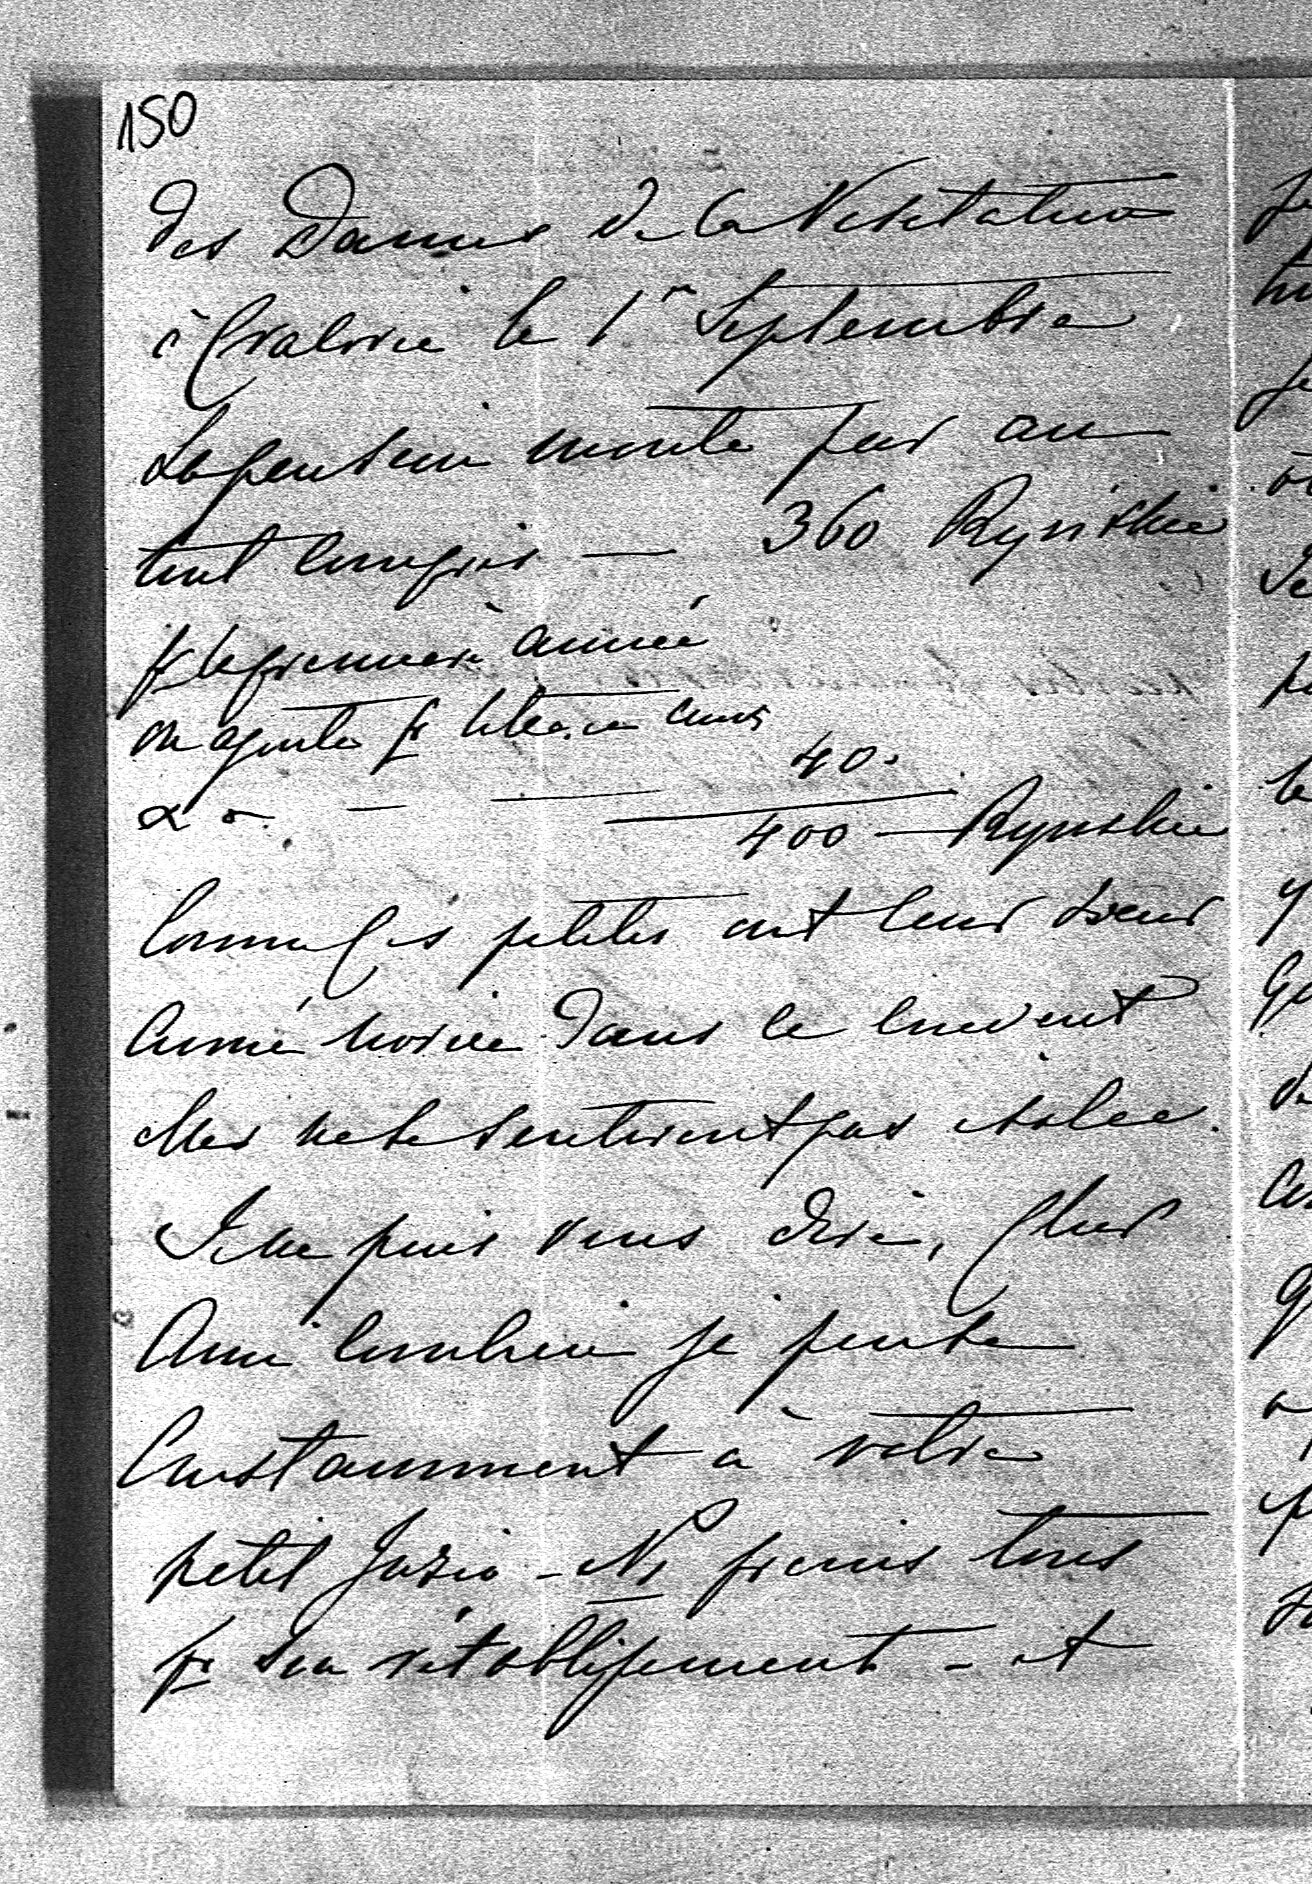 150
des Dames de la Visitation
à Cracovie le 1r Septembre
La pension monte par an
tout compris — 360 Ryńskie
pr la première année
on ajoute pr
40.
400 — Rynskie
Comme ces petites ont leur sœur
aimée novice dans le couvent
elles ne se sentiront pas isolée.
Je ne puis vous dire, cher
Ami combien je pense
constamment à votre
petit Juzio - Ns prions tous
pr son rétablissement - et